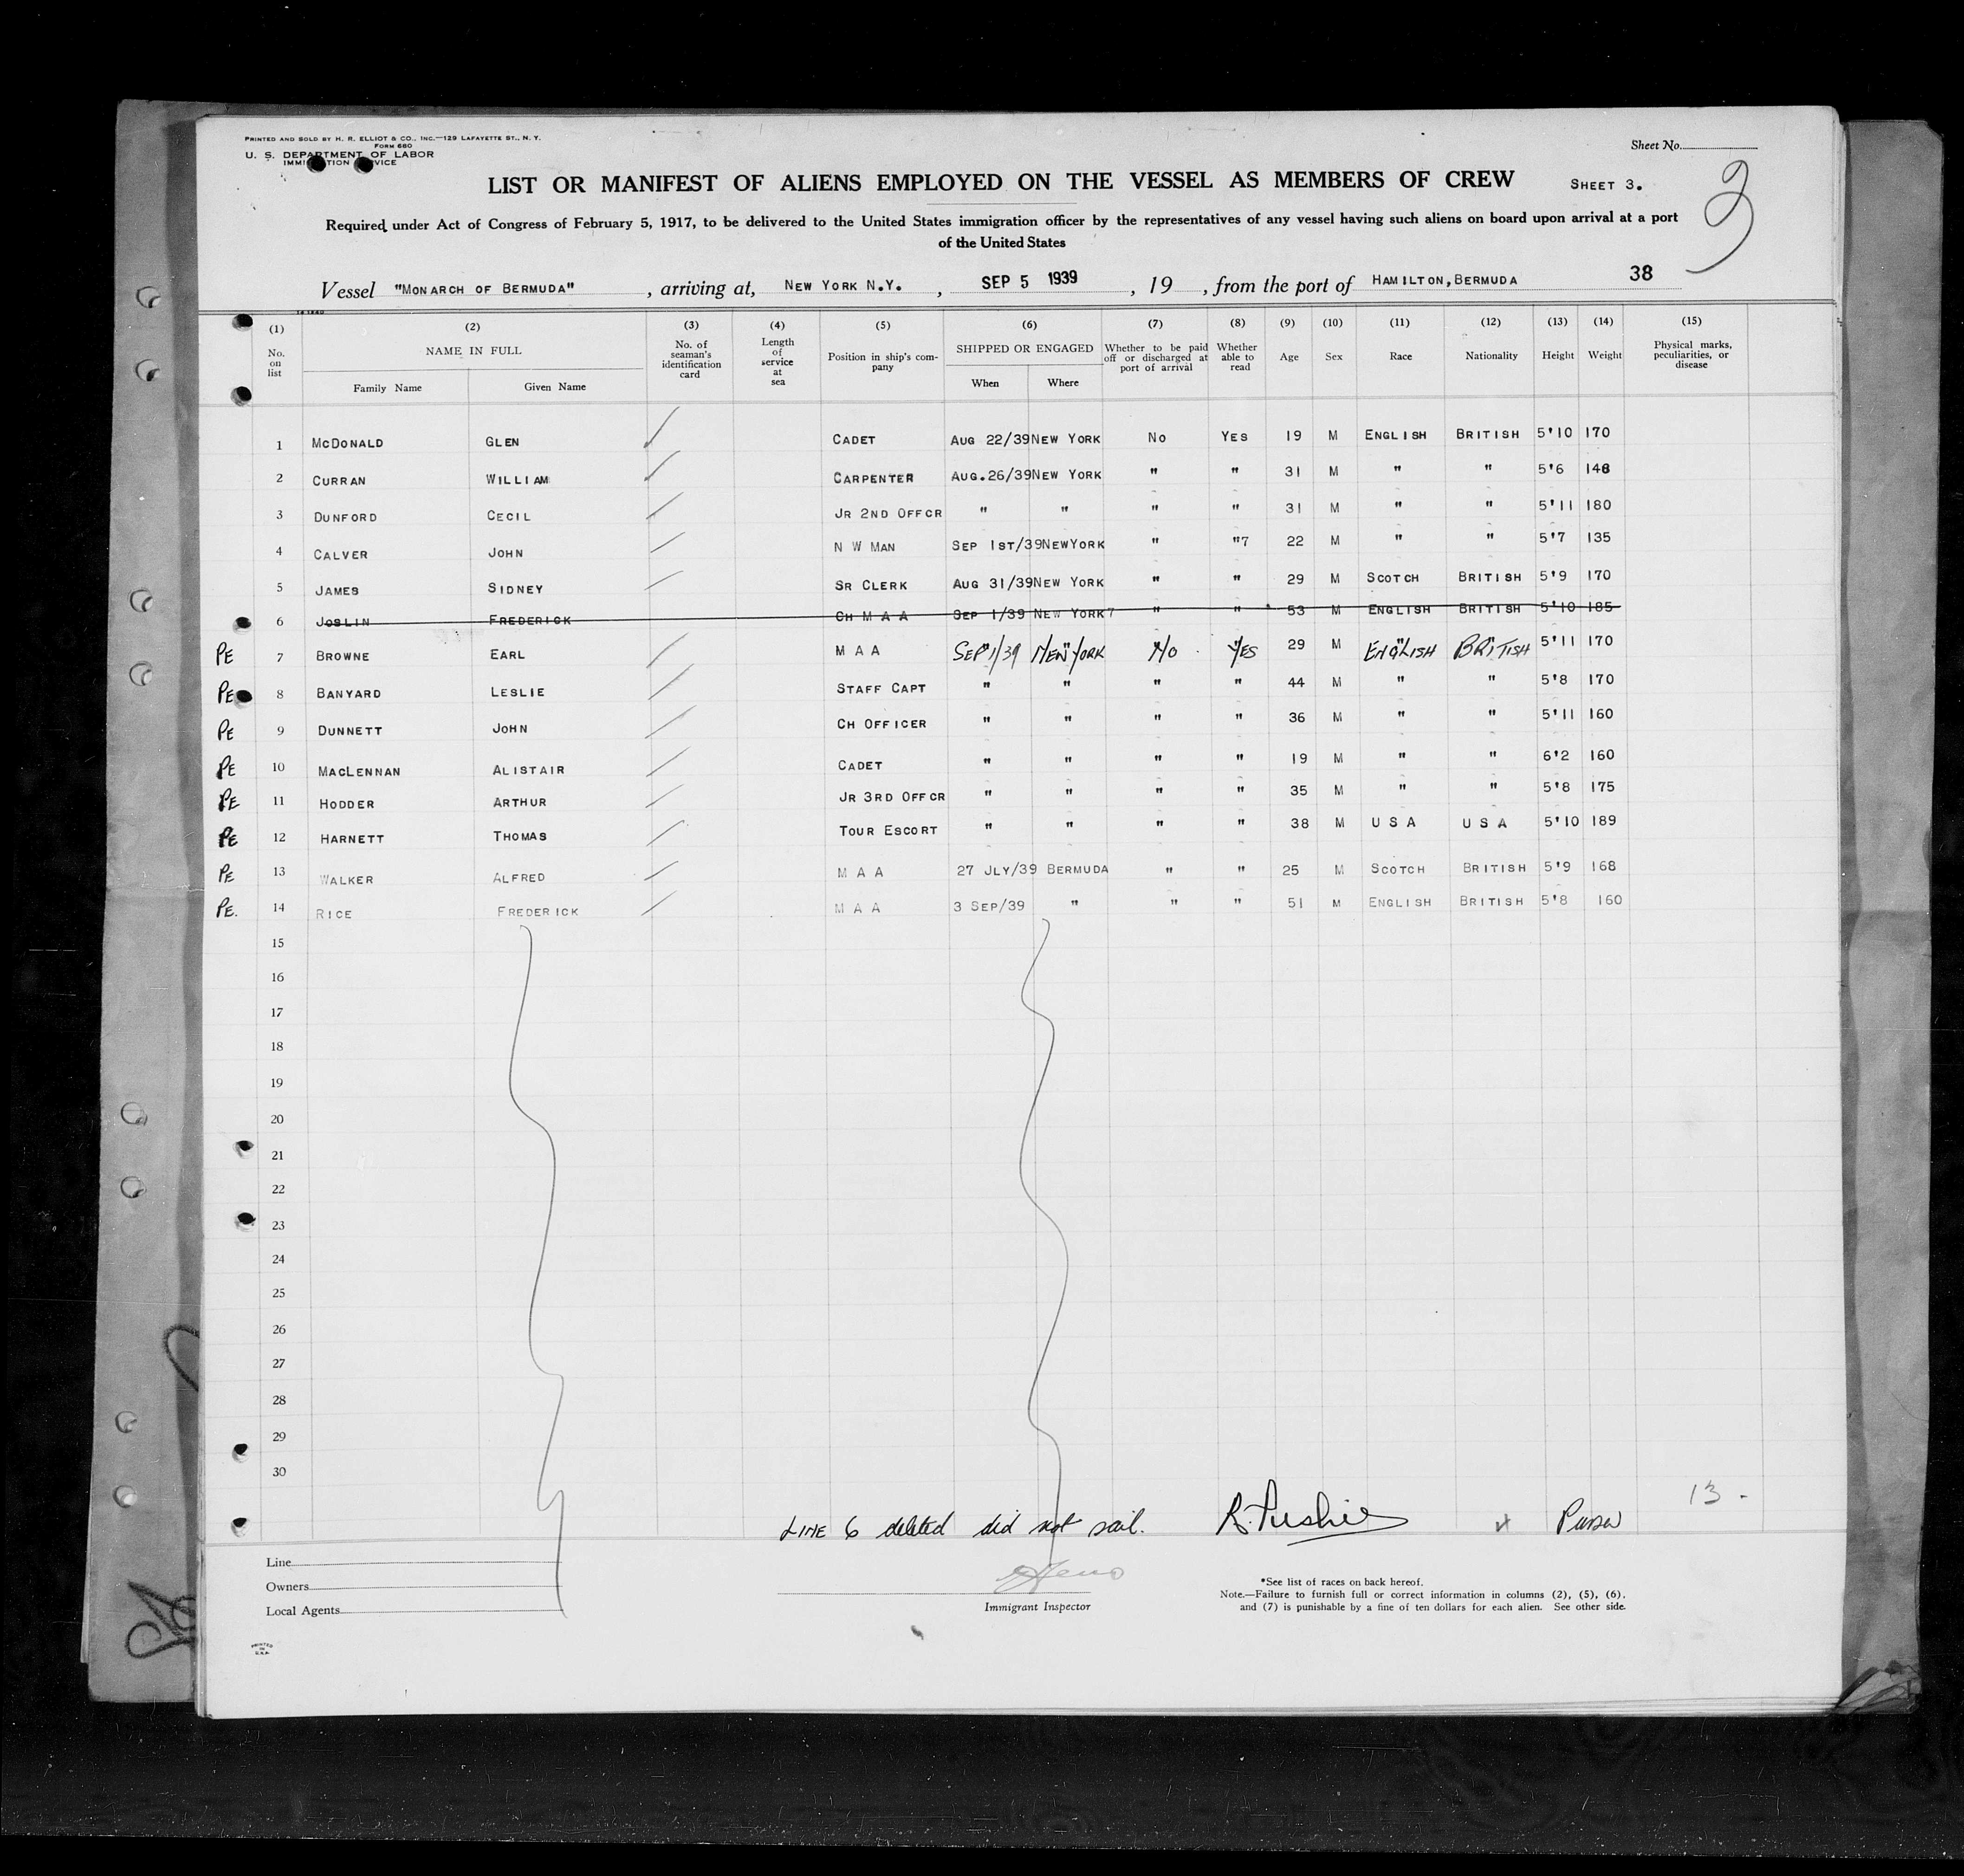 PRINTED AND SOLD BY H. R. ELLIOT & CO., INC.—129 LAFAYETTE ST., N. Y.
FORM 680
U. S. DEPARTMENT OF LABOR
Sheet No.
LIST OR MANIFEST OF ALIENS EMPLOYED ON THE VESSEL AS MEMBERS OF CREW SHEET 3. 3
Required under Act of Congress of February 5, 1917, to be delivered to the United States immigration officer by the representatives of any vessel having such aliens on board upon arrival at a port
of the United States
Vessel "MONARCH OF BERMUDA", arriving at, NEW YORK N.Y., SEP 5 1939, 19 , from the port of HAMILTON, BERMUDA 38
(1) (2) (3) (4) (5) (6) (7) (8) (9) (10) (11) (12) (13) (14) (15)
No. on list NAME IN FULL Family Name Given Name No. of seaman's identification card Length of service at sea Position in ship's company SHIPPED OR ENGAGED When Where Whether to be paid off or discharged at port of arrival Whether able to read Age Sex Race Nationality Height Weight Physical marks, peculiarities, or disease
1 McDONALD GLEN CADET AUG 22/39 NEW YORK NO YES 19 M ENGLISH BRITISH 5'10 170
2 CURRAN WILLIAM CARPENTER AUG.26/39 NEW YORK " " 31 M " " 5'6 148
3 DUNFORD CECIL JR 2ND OFFCR " " " " 31 M " " 5'11 180
4 CALVER JOHN N W MAN SEP 1ST/39 NEWYORK " "7 22 M " " 5'7 135
5 JAMES SIDNEY SR CLERK AUG 31/39 NEW YORK " " 29 M SCOTCH BRITISH 5'9 170
6 JOSLIN FREDERICK CH M A A SEP 1/39 NEW YORK " " 53 M ENGLISH BRITISH 5'10 185
PE 7 BROWNE EARL M A A SEP 1/39 NEW YORK NO YES 29 M ENGLISH BRITISH 5'11 170
PE 8 BANYARD LESLIE STAFF CAPT " " " " 44 M " " 5'8 170
PE 9 DUNNETT JOHN CH OFFICER " " " " 36 M " " 5'11 160
PE 10 MACLENNAN ALISTAIR CADET " " " " 19 M " " 6'2 160
PE 11 HODDER ARTHUR JR 3RD OFFCR " " " " 35 M " " 5'8 175
PE 12 HARNETT THOMAS TOUR ESCORT " " " " 38 M U S A U S A 5'10 189
PE 13 WALKER ALFRED M A A 27 JLY/39 BERMUDA " " 25 M SCOTCH BRITISH 5'9 168
PE. 14 RICE FREDERICK M A A 3 SEP/39 " " " 51 M ENGLISH BRITISH 5'8 160
15
16
17
18
19
20
21
22
23
24
25
26
27
28
29
30
13 -
LINE 6 deleted did not sail. Purser
Line
Owners
Local Agents
Immigrant Inspector
*See list of races on back hereof.
Note.—Failure to furnish full or correct information in columns (2), (5), (6).
and (7) is punishable by a fine of ten dollars for each alien. See other side.
PRINTED
IN
U.S.A.